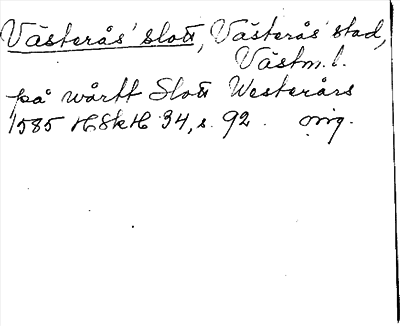 Västerås slott, Västerås stad,
Västm. l.
på wårtt Slott Westerårs
1585 HSkH 34, s. 92. orig.